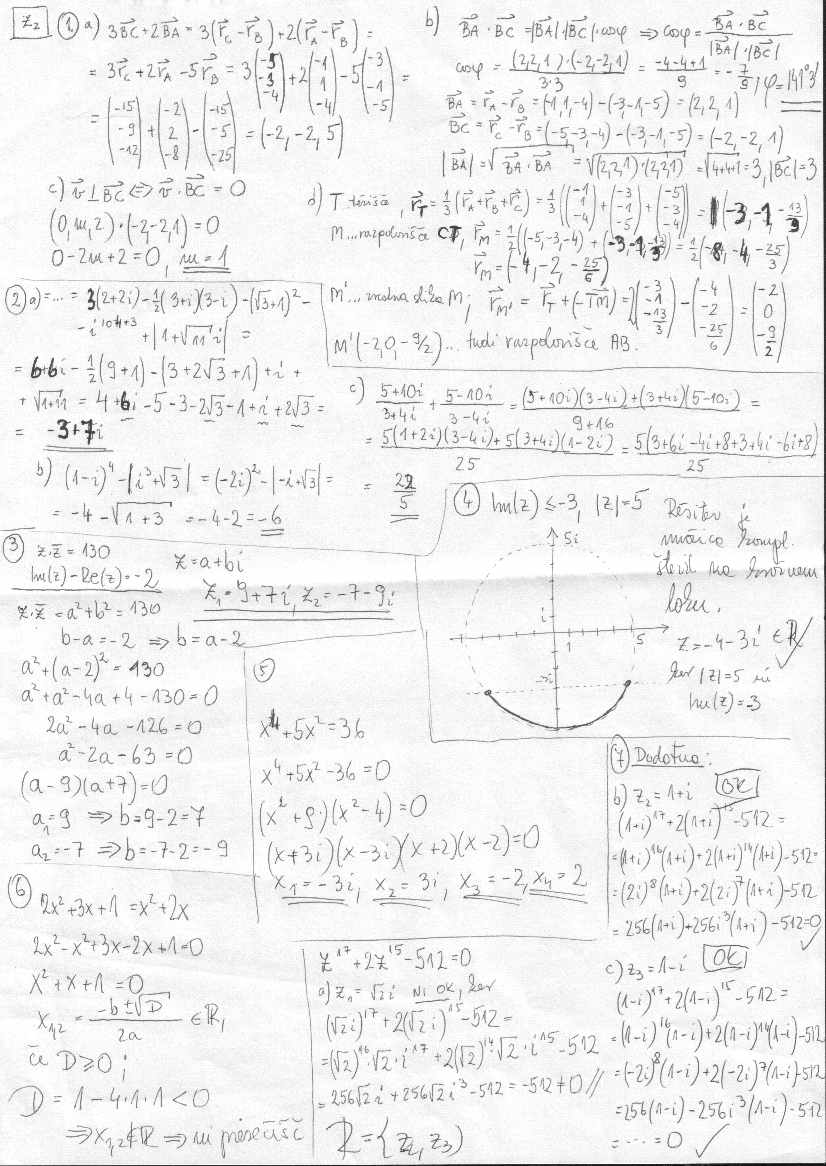 Z2
1 a) 3BC + 2BA = 3(r_C - r_B) + 2(r_A - r_B) =
= 3r_C + 2r_A - 5r_B = 3(-5, -3, -4) + 2(-1, 1, -4) - 5(-3, -1, -5) =
= (-15, -9, -12) + (-2, 2, -8) - (-15, -5, -25) = (-2, -2, 5)
b) BA · BC = |BA| · |BC| · cosφ ⇒ cosφ = BA · BC / |BA| · |BC|
cosφ = (2,2,1)·(-2,-2,1) / 3·3 = (-4-4+1)/9 = -7/9, φ = 141°3'
BA = r_A - r_B = (-1,1,-4) - (-3,-1,-5) = (2,2,1)
BC = r_C - r_B = (-5,-3,-4) - (-3,-1,-5) = (-2,-2,1)
|BA| = √(BA · BA) = √((2,2,1)·(2,2,1)) = √(4+4+1) = 3, |BC| = 3
c) v ⊥ BC ⇔ v · BC = 0
(0,m,2)·(-2,-2,1) = 0
0 - 2m + 2 = 0, m = 1
d) T težišče, r_T = 1/3 (r_A + r_B + r_C) = 1/3 ((-1, 1, -4) + (-3, -1, -5) + (-5, -3, -4)) = (-3, -1, -13/3)
M... razpolovišče CT, r_M = 1/2 ((-5,-3,-4) + (-3,-1,-13/3)) = 1/2 (-8, -4, -25/3)
r_M = (-4, -2, -25/6)
M'... zrcalna slika M; r_M' = r_T + (-TM) = 2(-3, -1, -13/3) - (-4, -2, -25/6) = (-2, 0, -9/2)
M'(-2, 0, -9/2) ... tudi razpolovišče AB.
2 a) = ... = 3(2+2i) - 1/2(3+i)(3-i) - (√3+1)² -
- i^(10··4+3) + |1+√11 i| =
= 6+6i - 1/2(9+1) - (3+2√3+1) + i +
+ √(1+11) = 4+6i - 5 - 3 - 2√3 - 1 + i + 2√3 =
= -3+7i
b) (1-i)⁴ - |i³+√3| = (-2i)² - |-i+√3| =
= -4 - √(1+3) = -4-2 = -6
c) (5+10i)/(3+4i) + (5-10i)/(3-4i) = ((5+10i)(3-4i) + (3+4i)(5-10i))/(9+16) =
= (5(1+2i)(3-4i) + 5(3+4i)(1-2i))/25 = 5(3+6i-4i+8+3+4i-6i+8)/25
= 22/5
3 z·z̄ = 130
Im(z) - Re(z) = -2
z = a+bi
z₁ = 9+7i, z₂ = -7-9i
z·z̄ = a²+b² = 130
b-a = -2 ⇒ b = a-2
a² + (a-2)² = 130
a² + a² - 4a + 4 - 130 = 0
2a² - 4a - 126 = 0
a² - 2a - 63 = 0
(a-9)(a+7) = 0
a₁ = 9 ⇒ b = 9-2 = 7
a₂ = -7 ⇒ b = -7-2 = -9
4 Im(z) ≤ -3, |z| = 5
Rešitev je
množica kompl.
števil na krožnem
loku.
5i
i
1
5
-3i
z = -4-3i ∈ R ✓
ker |z| = 5 in
Im(z) = -3
5
x⁴ + 5x² = 36
x⁴ + 5x² - 36 = 0
(x² + 9)·(x² - 4) = 0
(x+3i)(x-3i)(x+2)(x-2) = 0
x₁ = -3i, x₂ = 3i, x₃ = -2, x₄ = 2
6
2x² + 3x + 1 = x² + 2x
2x² - x² + 3x - 2x + 1 = 0
x² + x + 1 = 0
x₁,₂ = (-b ± √D)/2a ∈ R,
če D ≥ 0;
D = 1 - 4·1·1 < 0
⇒ x₁,₂ ∉ R ⇒ ni presečišč
7 Dodatna:
z¹⁷ + 2z¹⁵ - 512 = 0
a) z₁ = √2 i NI OK, ker
(√2 i)¹⁷ + 2(√2 i)¹⁵ - 512 =
= (√2)¹⁶·√2·i¹⁷ + 2(√2)¹⁴·√2·i¹⁵ - 512
= 256√2 i + 256√2 i³ - 512 = -512 ≠ 0 //
R = {z₂, z₃}
b) z₂ = 1+i OK
(1+i)¹⁷ + 2(1+i)¹⁵ - 512 =
= (1+i)¹⁶(1+i) + 2(1+i)¹⁴(1+i) - 512 =
= (2i)⁸(1+i) + 2(2i)⁷(1+i) - 512
= 256(1+i) + 256i³(1+i) - 512 = 0 ✓
c) z₃ = 1-i OK
(1-i)¹⁷ + 2(1-i)¹⁵ - 512 =
= (1-i)¹⁶(1-i) + 2(1-i)¹⁴(1-i) - 512
= (-2i)⁸(1-i) + 2(-2i)⁷(1-i) - 512
= 256(1-i) - 256i³(1-i) - 512
= ... = 0 ✓